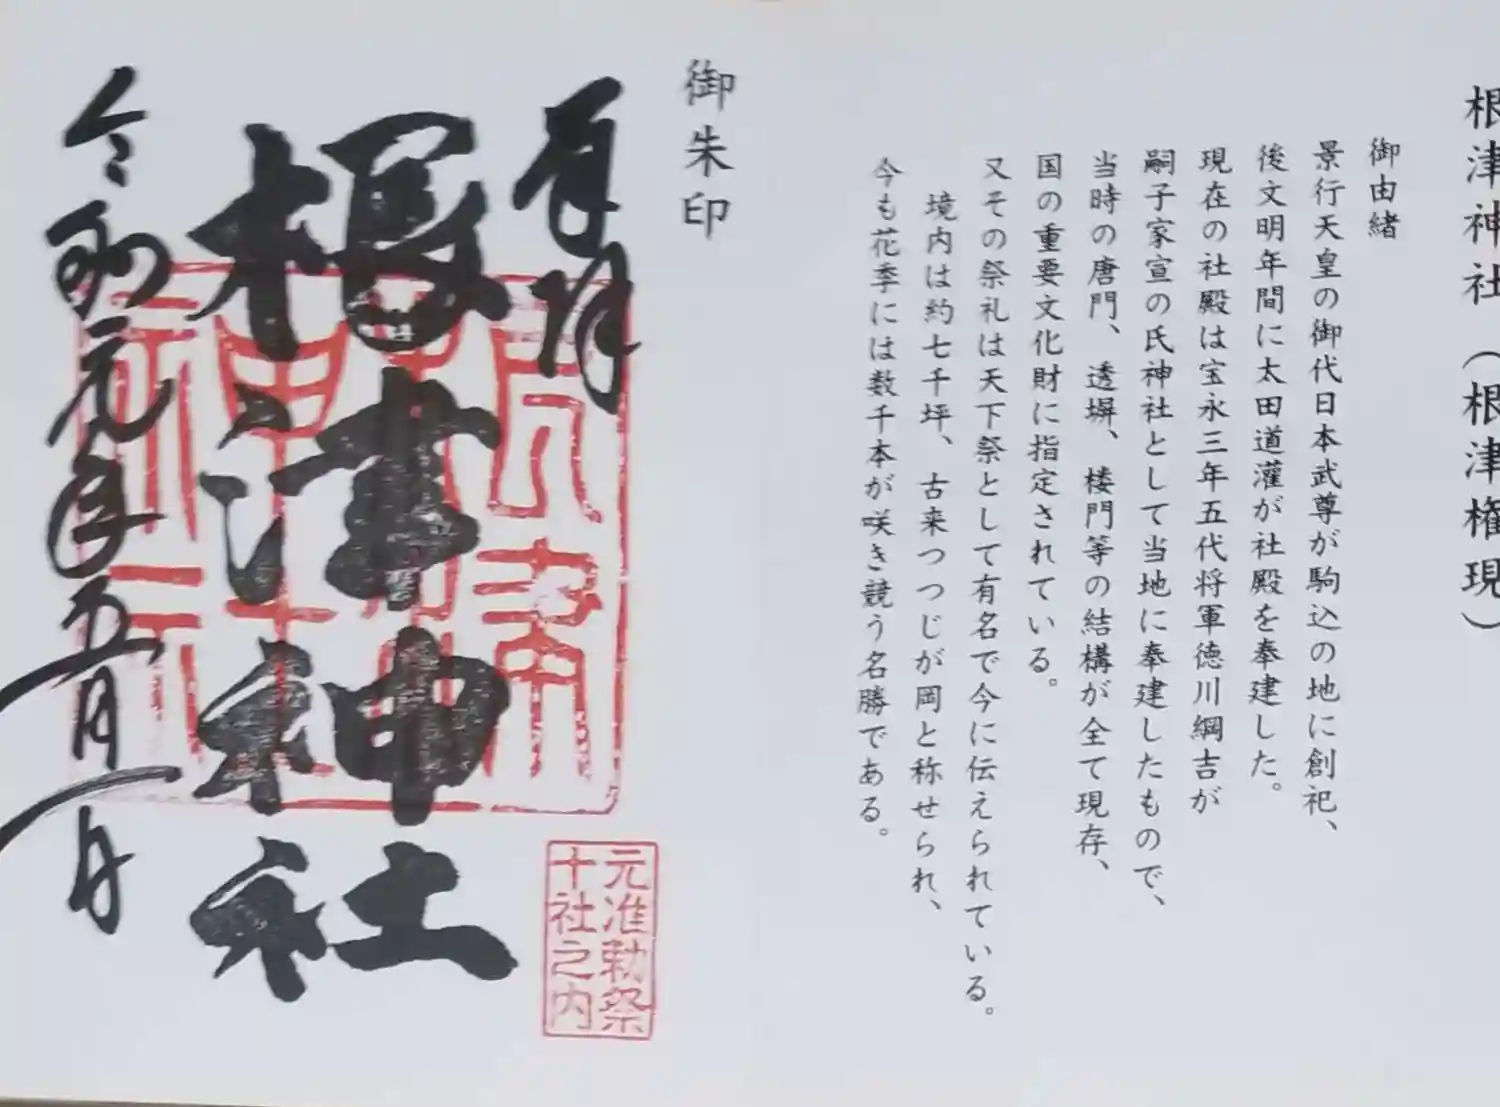 根津神社(根津権現)
御由緒
景行天皇の御代日本武尊が駒込の地に創祀、
後文明年間に太田道灌が社殿を奉建した。
現在の社殿は宝永三年五代将軍徳川綱吉が
嗣子家宣の氏神社として当地に奉建したもので、
当時の唐門、透塀、楼門等の結構が全て現存、
国の重要文化財に指定されている。
又その祭礼は天下祭として有名で今に伝えられている。
境内は約七千坪、古来つつじが岡と称せられ、
今も花季には数千本が咲き競う名勝である。
御朱印
奉拝
根津神社
令和元年五月一日
元准勅祭
十社之内